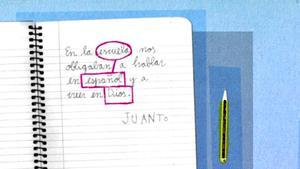 En la escuela nos
obligaban a hablar
en español y a
creer en Dios.
JUANTO